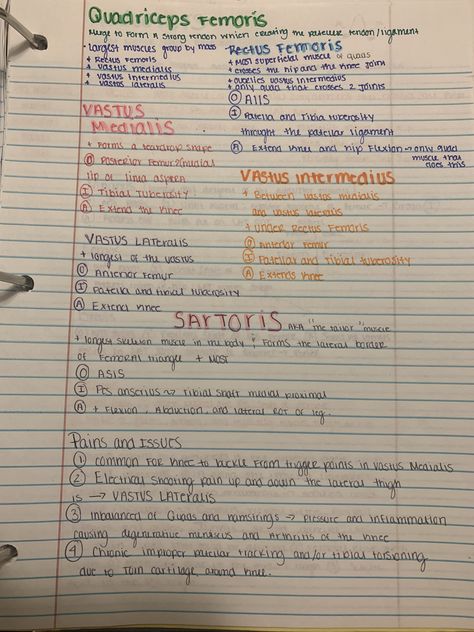 Quadriceps Femoris
Merge to form a strong tendon which creating the patellar tendon/ligament
• largest muscles group by mass
+ Rectus Femoris
+ vastus medialis
+ vastus intermedius
+ vastus lateralis
Rectus Femoris
+ Most superficial muscle of quads
+ crosses the hip and the knee joint
+ overlies vastus intermedius
+ only quad that crosses 2 joints
O AIIS
I Patella and Tibia tuberosity
throught the patellar ligament
A Extend knee and hip flexion → only quad
muscle that
does this
VASTUS
Medialis
+ Forms a teardrop shape
O Posterior Femur medial
lip of linia aspera
I Tibial Tuberosity
A Extend the knee
VASTUS Intermedius
+ Between vastus medialis
and vastus lateralis
+ under Rectus Femoris
O Anterior Femur
I Patellar and tibial tuberosity
A Extends knee
VASTUS LATERALIS
+ largest of the vastus
O Anterior Femur
I Patella and tibial tuberosity
A Extend knee
SARTORIS AKA "the tailor" muscle
+ longest skeleton muscle in the body; Forms the lateral border
of Femoral triangle + Most
O ASIS
I Pes anserius → tibial shaft medial proximal
A + Flexion, Abduction, and lateral ROT of leg.
Pains and Issues
1 common for knee to buckle from trigger points in vastus Medialis
2 Electrical shooting pain up and down the lateral thigh
is → VASTUS LATERALIS
3 Inbalanced of Quads and hamstrings → pressure and inflammation
causing degenerative meniscus and Arthritis of the knee
4 Chronic improper patellar tracking and/or tibial torsioning
due to torn cartilage around knee.